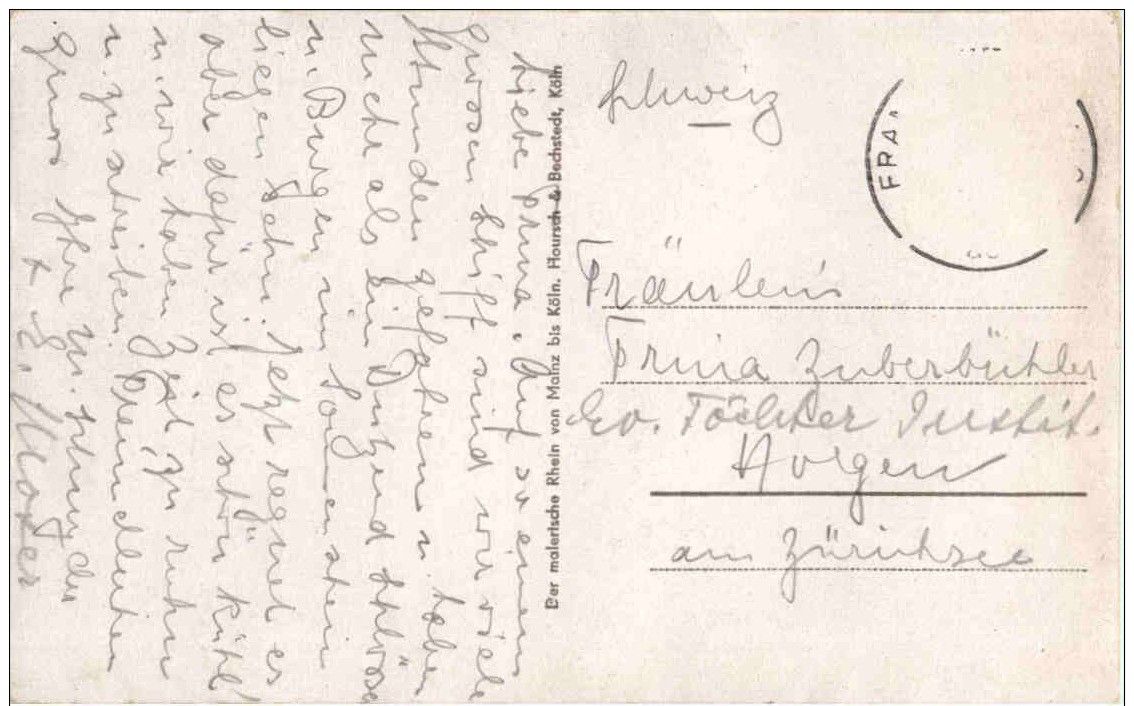 Liebe Trina, Auf so einem
grossen Schiff sind wir viele
Stunden gefahren u. haben
mehr als ein Dutzend Schlösser
u. Burgen im Sonnenschein
liegen sehn. Jetzt regnet es
aber dafür ist es schön kühl
u. wir haben Zeit zu ruhen
u. zu schreiben. Freundlichen
Gruss Ihre M.
+ E.
Der malerische Rhein von Mainz bis Köln. Hoursch & Bechstedt, Köln
Schweiz
FRA
Fräulein
Trina Zuberbühler
Ev. Töchter Instit.
Horgen
am Zürichsee